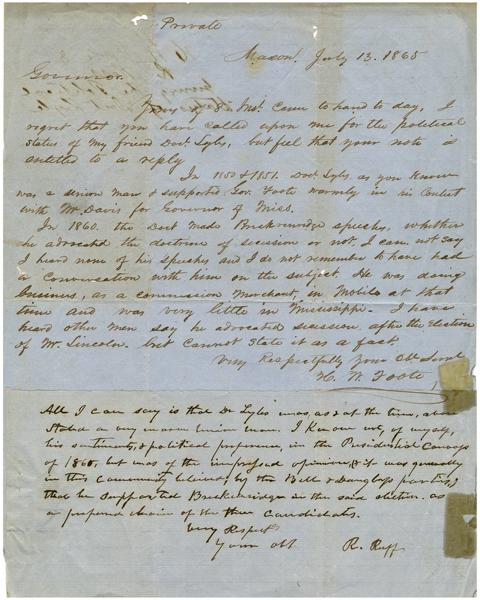 Private
Macon, July 13. 1865
Governor.
Yours of 8 Inst. Came to hand to day, I
regret that you have called upon me for the political
status of my friend Doct Lyles, but feel that your note is
entitled to a reply
In 1850 & 1851. Doct Lyles, as you know
was a union man & supported Gov. Foote warmly in his Contest
with Mr. Davis for Governor of Miss.
In 1860. the Doct made Breckenridge speeches, whether
he advocated the doctrine of secession or not, I can not say
I heard none of his speeches and I do not remember to have had
a Conversation with him on the subject. He was doing
business, as a commission Merchant, in Mobile at that
time and was very little in Mississippi. I have
heard other men say he advocated secession after the election
of Mr. Lincoln. but cannot state it as a fact.
Very Respectfully your Obt Servt
H. W. Foote
All I can say is that Dr Lyles was, as & at the time, above
Stated a very warm union man. I know not, of myself,
his sentiments, & political preference, in the Presidential Canvass
of 1860, but was of the opinion, & it was generally
in this Community believed, by the Bell & Douglass parties,
that he supported Breckenridge in the said election. as
a choice of the three Candidates.
Very Respect
Your obt R. Ruff